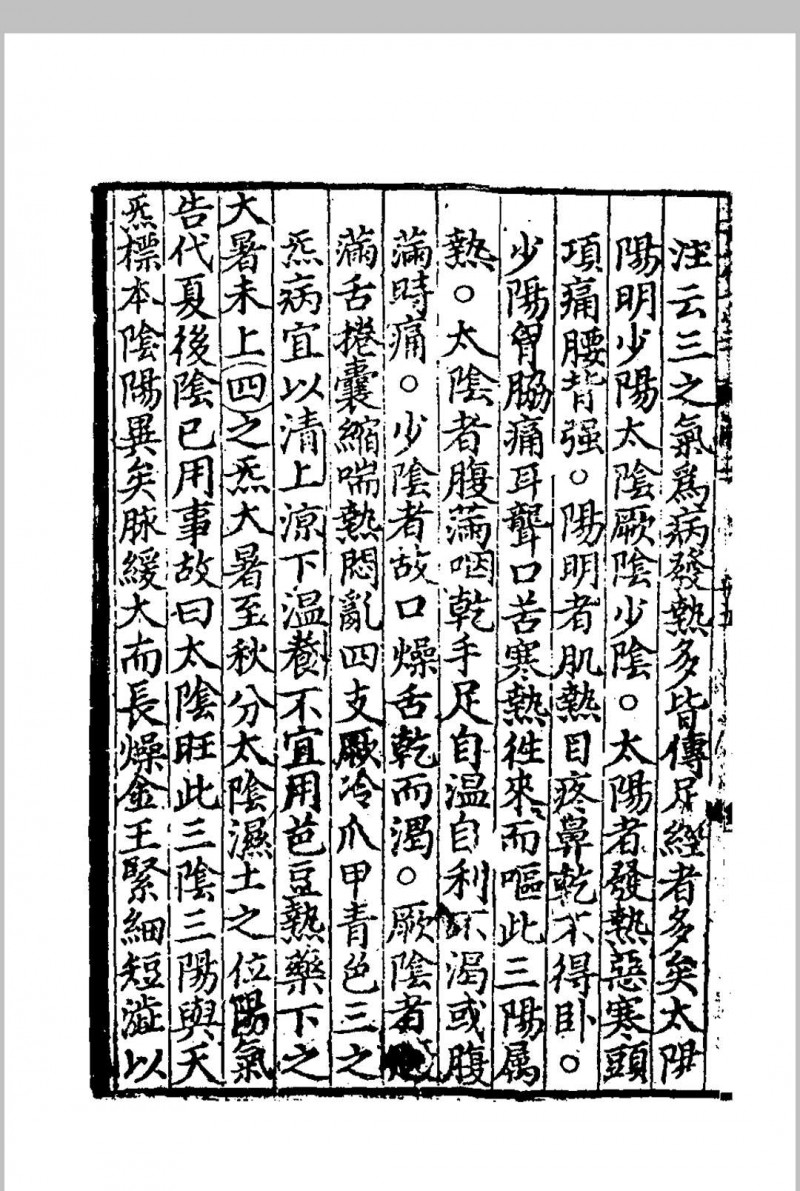 注云三之氣爲病發熱多皆傳足經者多矣太陽
陽明少陽太陰厥陰少陰○太陽者發熱惡寒頭
項痛腰背强○陽明者肌熱目疼鼻乾不得卧○
少陽胷脇痛耳聾口苦寒熱徃來而嘔此三陽属
熱○太陰者腹滿咽乾手足自温自利不渴或腹
滿時痛○少陰者故口燥舌乾而渴○厥陰者
滿舌捲囊縮喘熱悶亂四支厥冷爪甲青色三之
炁病宜以清上凉下温養不宜用芭豆熱藥下之
大暑未上(四)之炁大暑至秋分太陰濕土之位陽氣
告代夏後陰已用事故曰太陰旺此三陰三陽與天
炁標本陰陽異矣脉緩大而長燥金王緊細短澁以